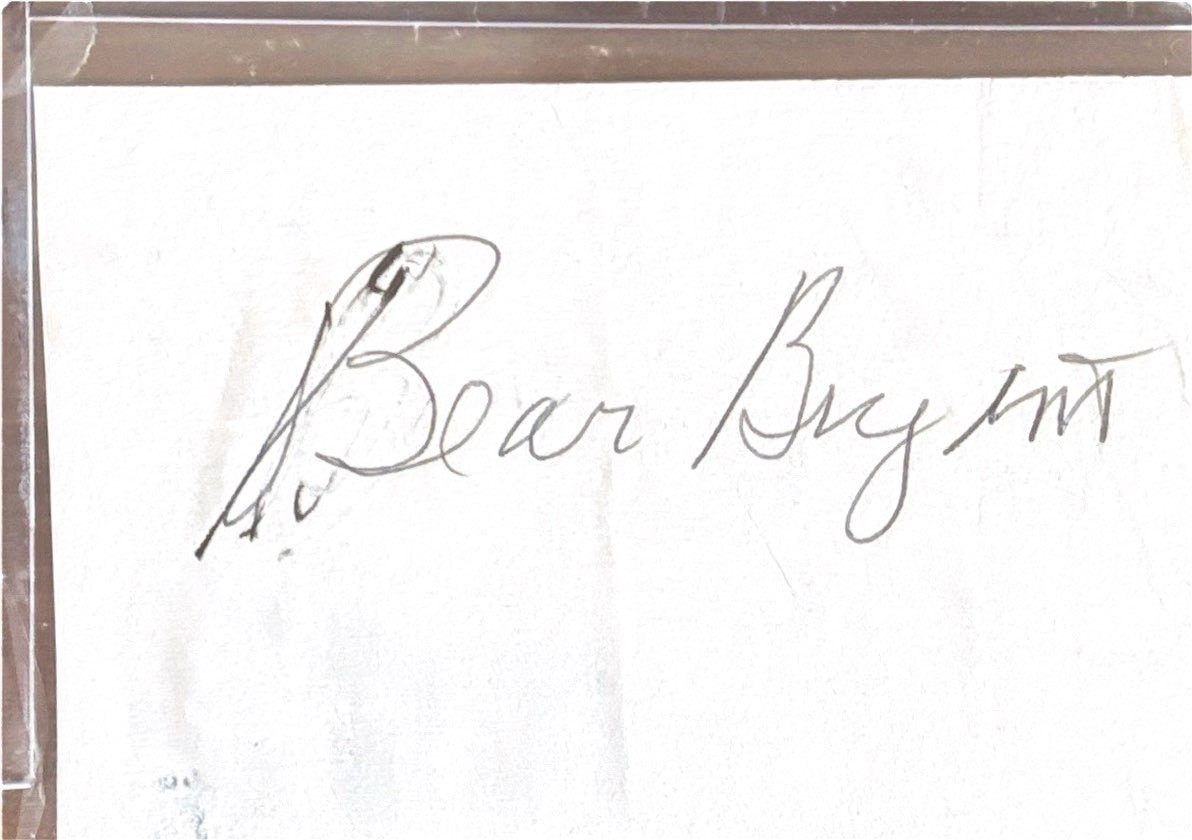 Bear Bryant